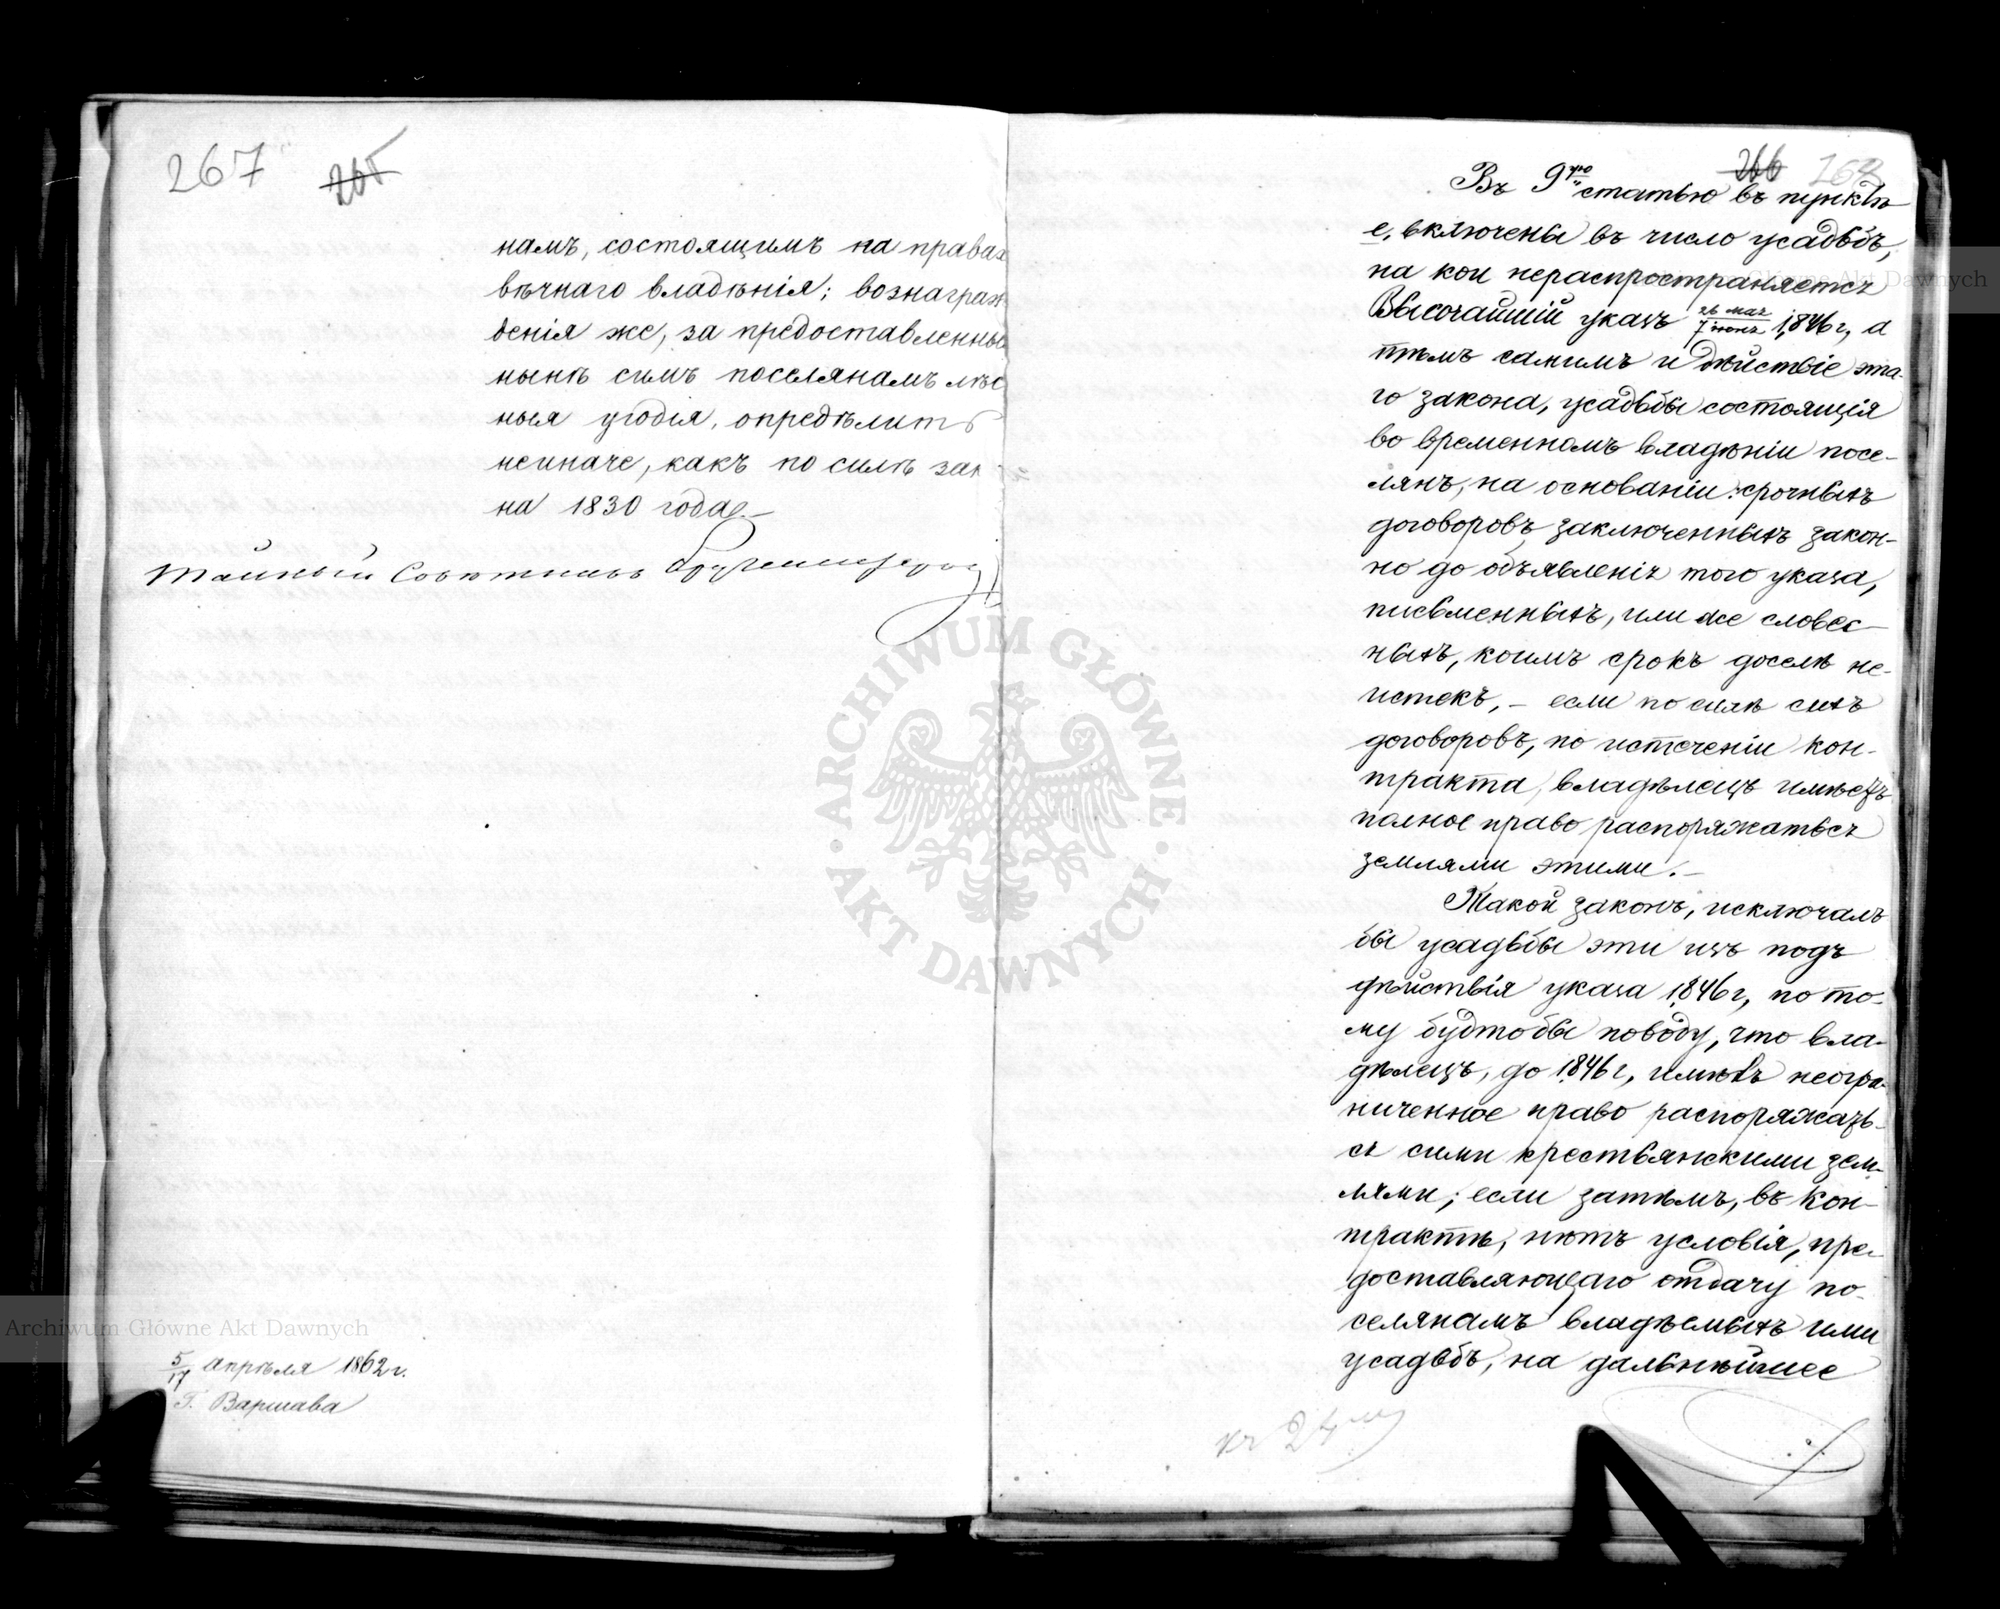 267 265
намъ, состоящимъ на правах
вѣчнаго владѣнія; вознаграж
денія же, за предоставленныя
нынѣ симъ поселянамъ лѣс
ныя угодія, опредѣлить
неиначе, какъ по силѣ зак
на 1830 года.—
Тайный Совѣтникъ
5/17 апрѣля 1862 г.
Г. Варшава
266 268
Въ 9ую статью въ пунктѣ
е, включены въ число усадьбъ,
на кои нераспространяется
Высочайшій указъ 26 мая/7 іюня 1846 г, а
тѣмъ самимъ и дѣйствіе эта-
го закона, усадьбы состоящія
во временномъ владѣніи посе-
лянъ, на основаніи: срочныхъ
договоровъ, заключенныхъ закон-
но до объявленія того указа,
письменныхъ, или же словес-
ныхъ, коимъ срокъ доселѣ не-
истекъ, – если по силѣ сихъ
договоровъ, по истеченіи кон-
тракта, владѣлецъ имѣетъ
полное право распоряжаться
землями этими.–
Такой законъ, исключалъ
бы усадьбы эти изъ подъ
дѣйствія указа 1846 г, по то-
му будтобы поводу, что вла-
дѣлецъ, до 1846 г, имѣлъ неогра-
ниченное право распоряжать-
ся сими крестьянскими зем-
лями; если затѣмъ, въ кон-
трактѣ, нѣтъ условія, пре-
доставляющаго отдачу по-
селянамъ владѣемыхъ ими
усадьбъ, на дальнѣйшее
къ 24
ARCHIWUM GŁÓWNE AKT DAWNYCH
Archiwum Główne Akt Dawnych
Archiwum Główne Akt Dawnych